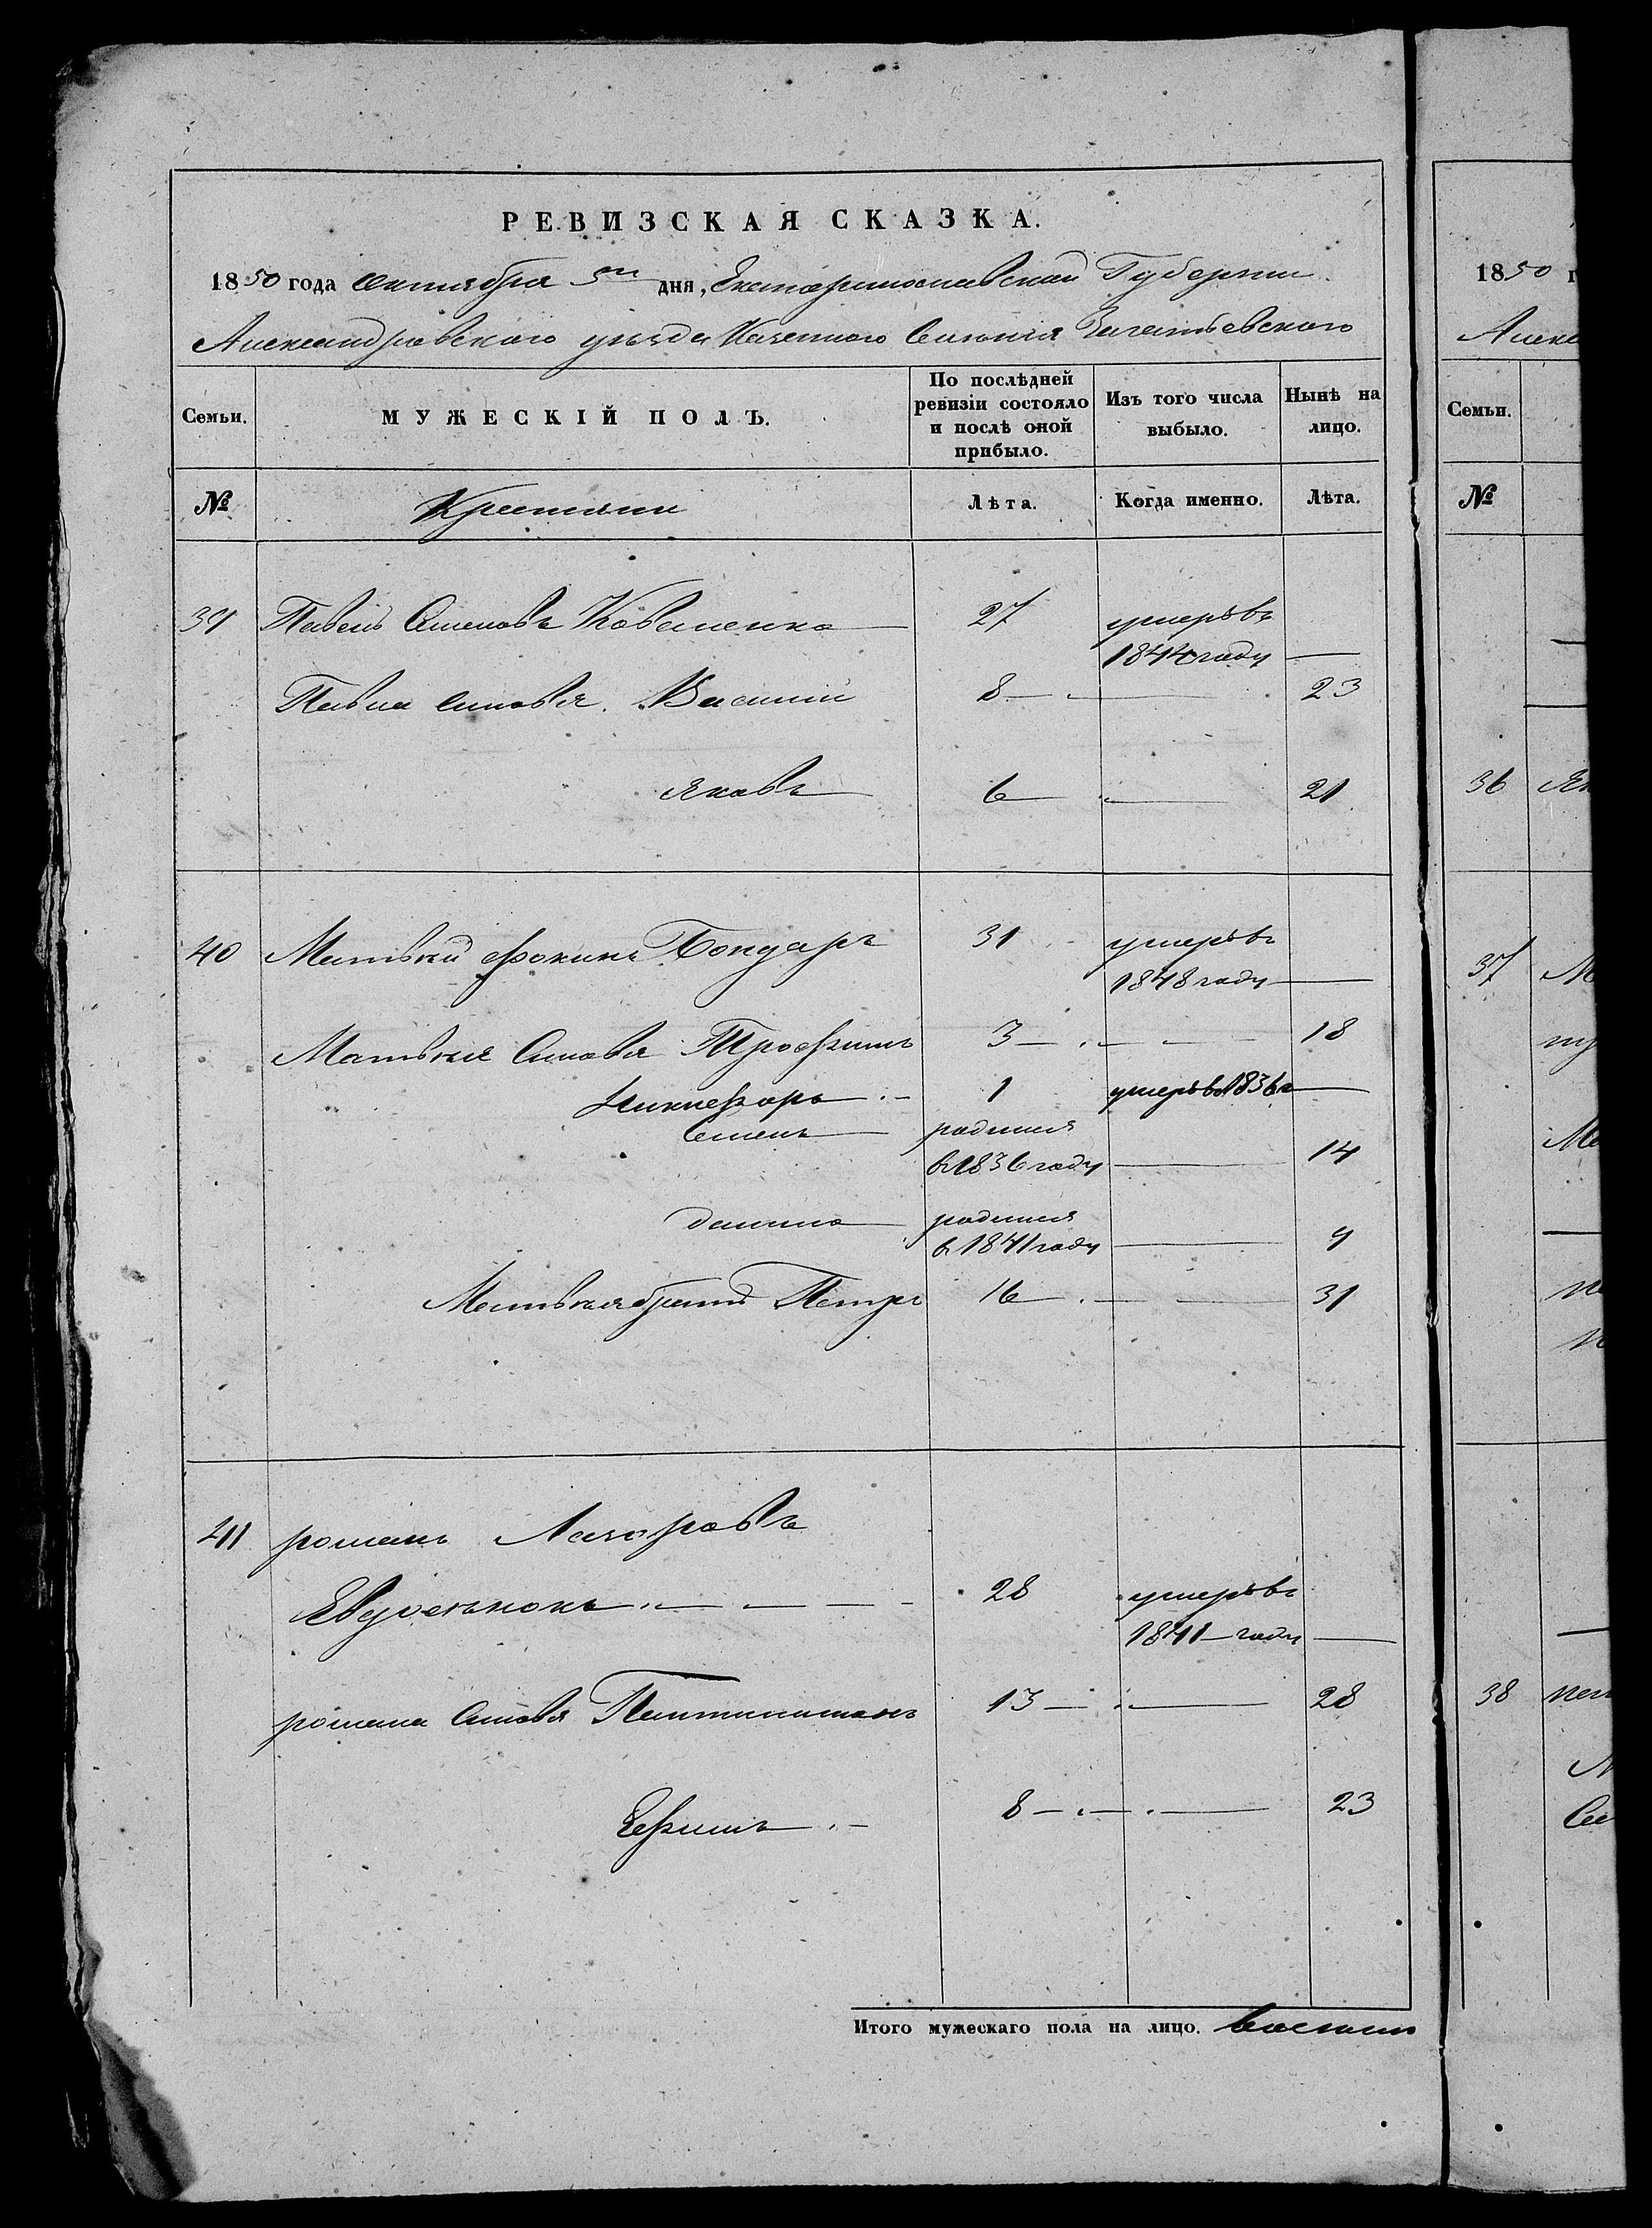 РЕВИЗСКАЯ СКАЗКА.
1850 года октября 5го дня, Екатеринославской Губернии
Александровского уезда Казенного Селения Зачатьевского
Семьи. МУЖЕСКІЙ ПОЛЪ. По послѣдней ревизіи состояло и послѣ оной прибыло. Изъ того числа выбыло. Нынѣ на лицо.
№ Крестьяни Лѣта. Когда именно. Лѣта.
39 Павелъ Семеновъ Коваленко 27 умеръ въ
1844 году —
Павла сыновья. Василий 8 — 23
Яковъ 6 — 21
40 Матвѣй Фокинъ Бондарь 31 умеръ въ
1848 году —
Матвѣя Сыновья Трофимъ 3 — 18
Никифоръ 1 умеръ въ 1836 г —
Семенъ родился
въ 1836 году — 14
данило родился
в 1841 году — 9
Матвѣя братъ Петръ 16 — 31
41 романъ Лазоровъ
28 умеръ въ
1841 — году —
романа Сыновья Пантилимонъ 13 — 28
Ефимъ 8 — 23
Итого мужескаго пола на лицо. восемь
1850 г
Алекс
Семьи.
№
36 Як
37 М
38